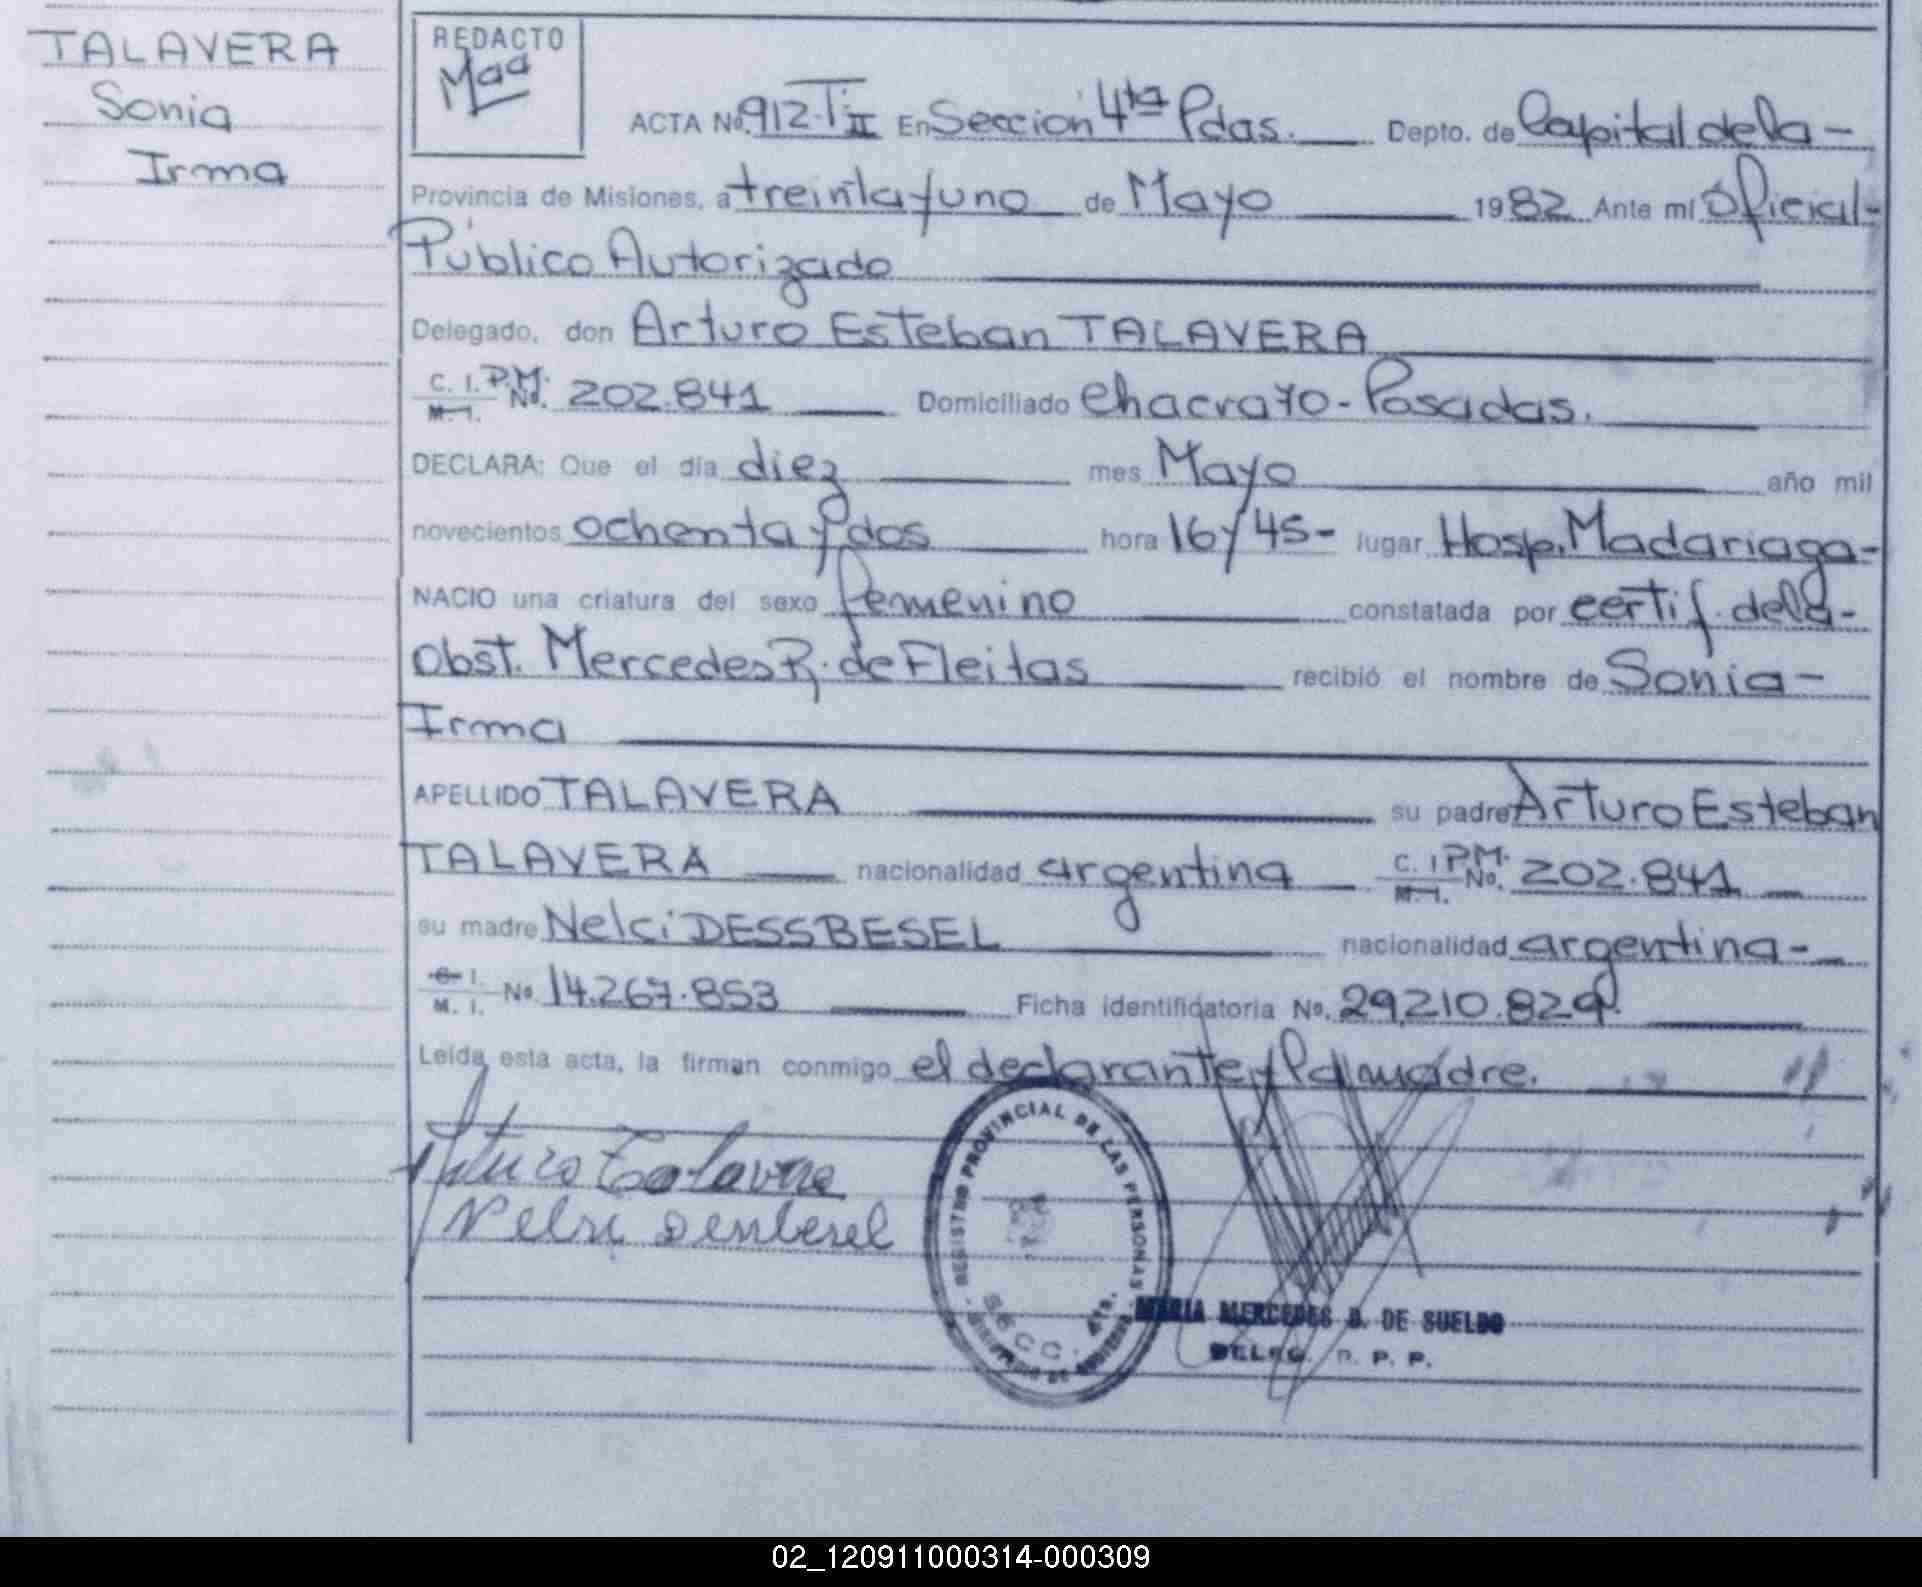 TALAVERA
Sonia
Irma
REDACTO
Maa
ACTA No. 912-T: II En Sección 4ta Pdas. Depto. de Capital de la -
Provincia de Misiones, a treinta y uno de Mayo 1982 Ante mí Oficial -
Público Autorizado
Delegado, don Arturo Esteban TALAVERA
C. I. P.M. M. I. No. 202.841 Domiciliado Chacra 70 - Posadas.
DECLARA: Que el día diez mes Mayo año mil
novecientos ochenta y dos hora 16 y 45 - lugar Hosp. Madariaga -
NACIO una criatura del sexo femenino constatada por certif. de la -
Obst. Mercedes R. de Fleitas recibió el nombre de Sonia -
Irma
APELLIDO TALAVERA su padre Arturo Esteban
TALAVERA nacionalidad argentina C. I. P.M. M. I. No. 202.841
su madre Nelci DESSBESEL nacionalidad argentina -
C. I. M. I. No. 14.267.853 Ficha identificatoria No. 29.210.829.
Leída esta acta, la firman conmigo el declarante y la madre.
Arturo Talavera
Nelsi Denbesel
REGISTRO PROVINCIAL DE LAS PERSONAS
SECC. 4ta.
MARIA MERCEDES B. DE SUELDO
DELEG. R. P. P.
02_120911000314-000309